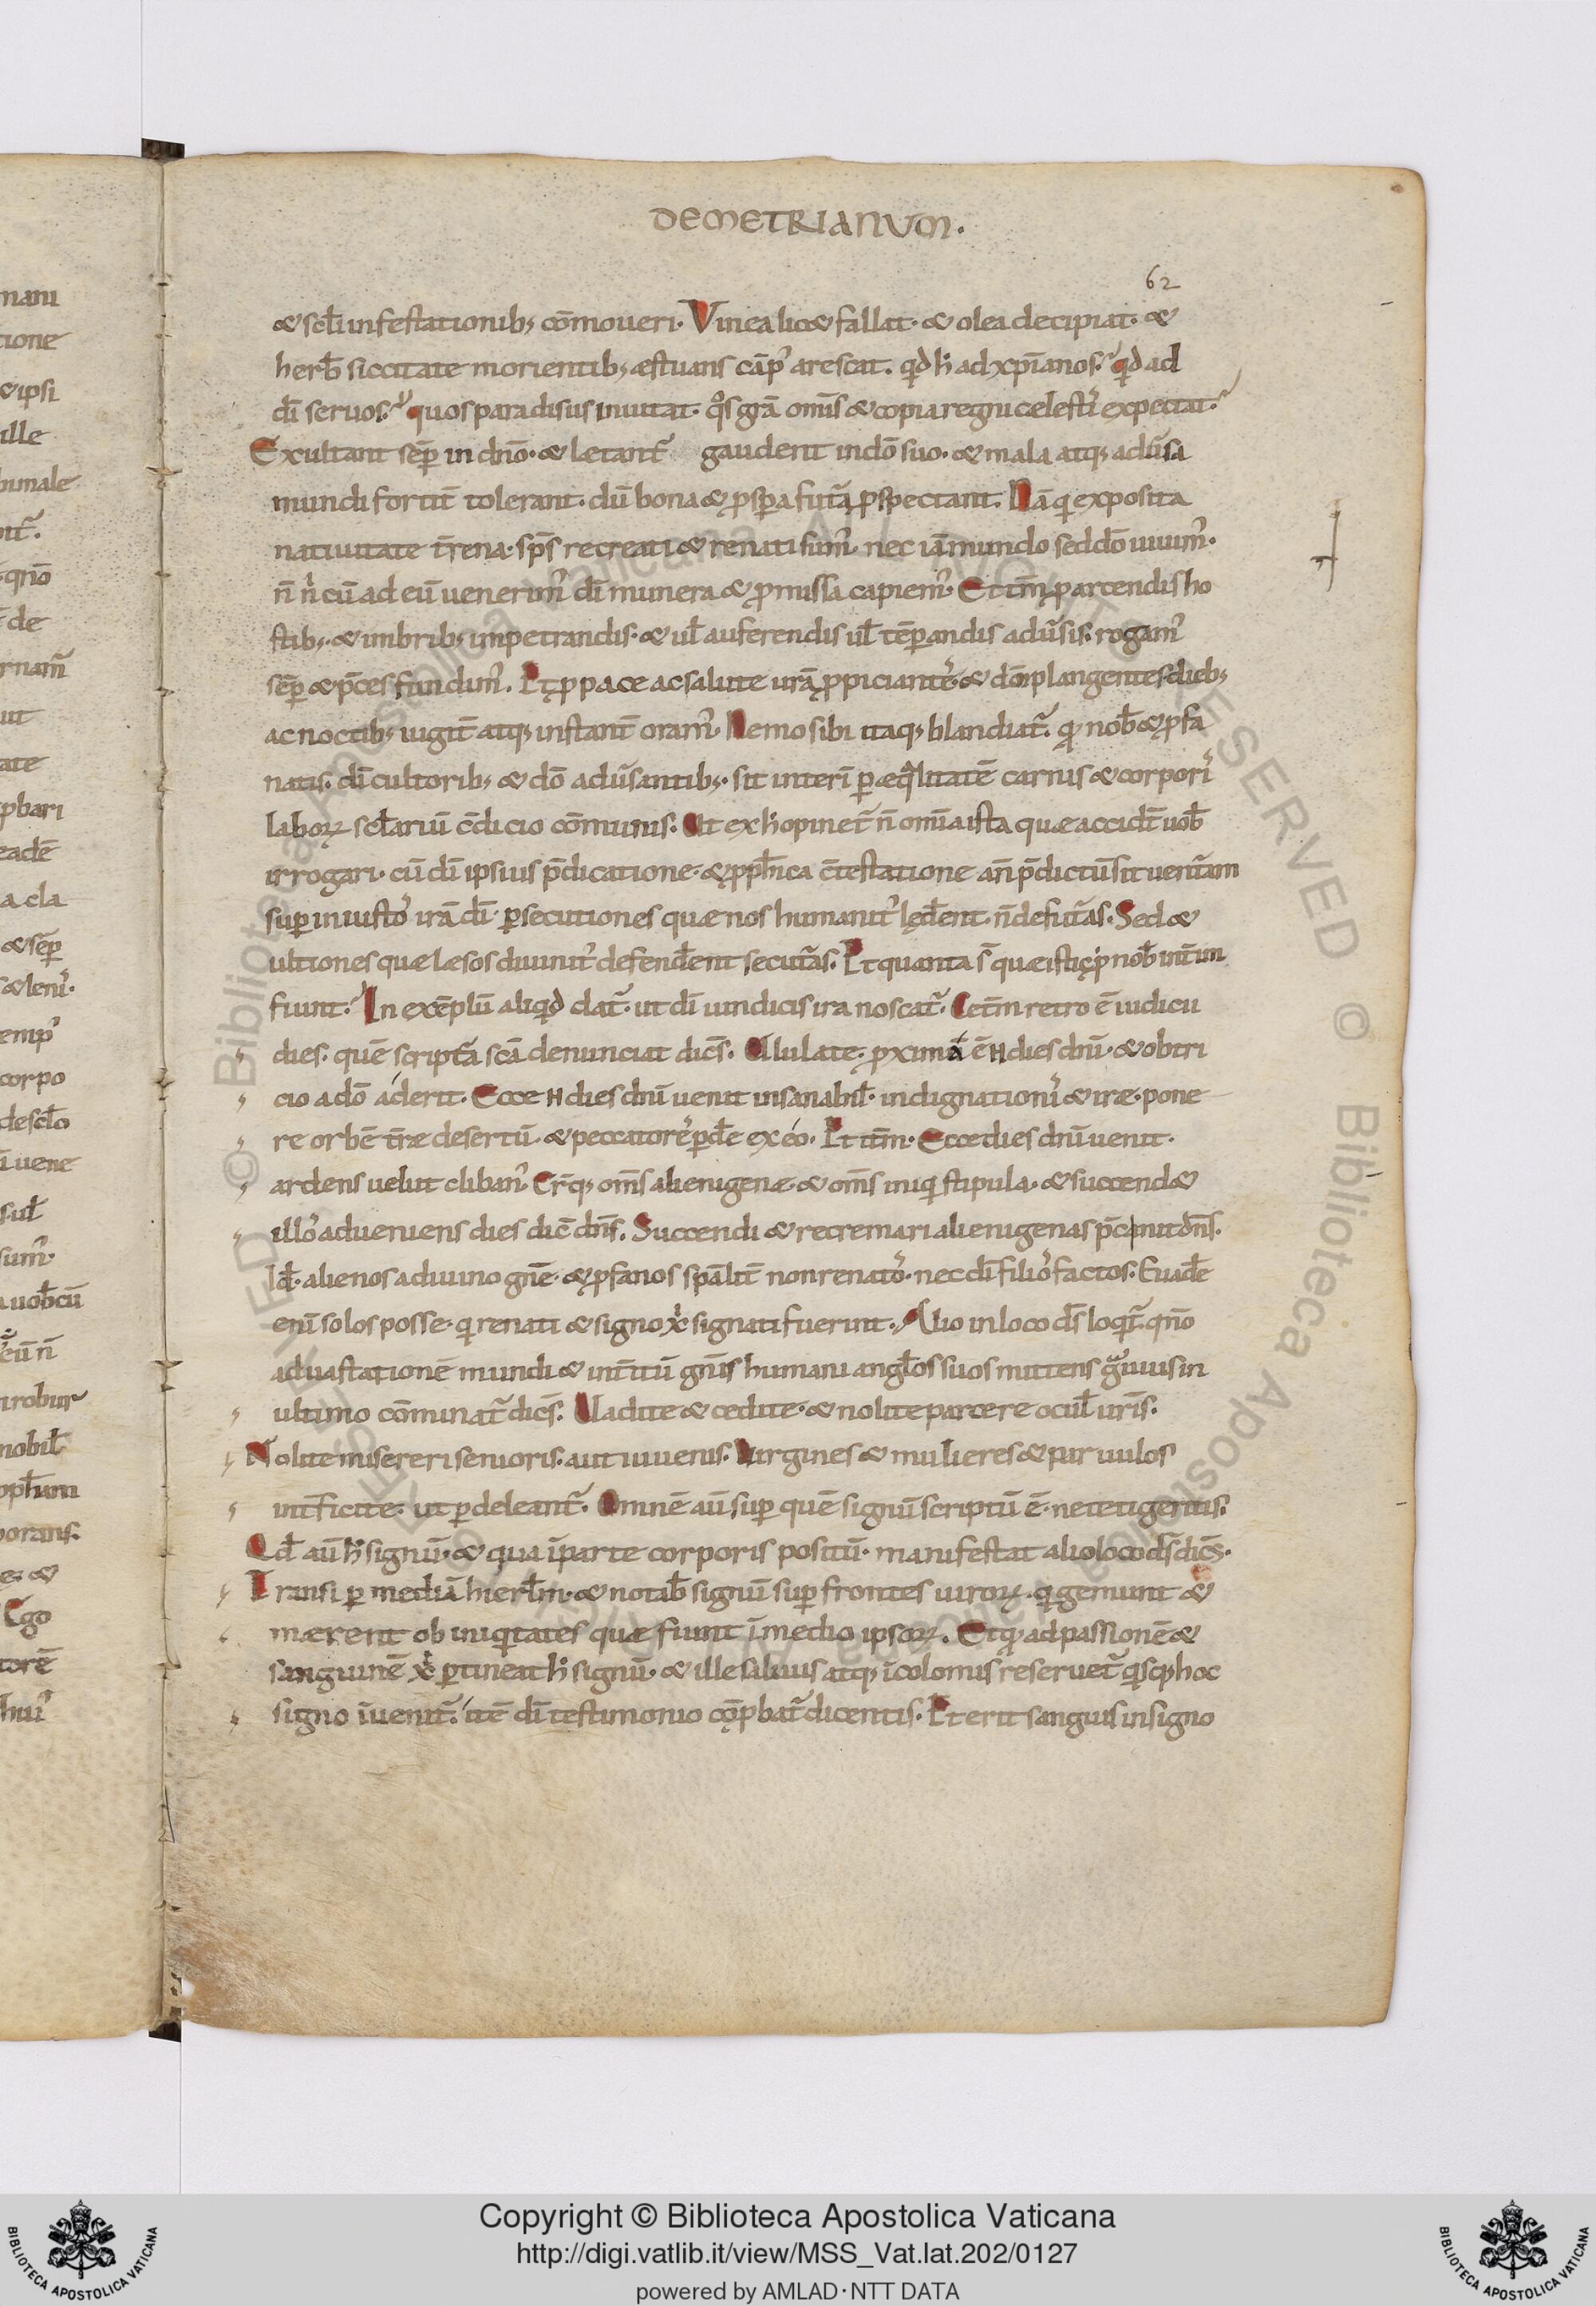 DEMETRIANVM.
62
& scl̄i infestationib; cōmoueri. Vinea lic& fallat. & olea decipiat. &
herb̄ siccitate morientib; æstuans cāp' arescat. qd h̄ ad xp̄ianos. qd ad
dī seruos. quos paradisus inuitat. qos grā omīs & copia regni celestis expectat.
Exultant sēp in dnō. & lætant̄ gaudent in dō suo. & mala atq; adūsa
mundi fortit̄ tolerant. dū bona & pspera futa pspectant. Nā qi exposita
natiuitate t̄rena. sp̄s recreati & renati sum'. nec iā mundo sed dō uiuim'.
n̄ n' cū ad eū uenerim' dī munera & pmissa capiem'. Et tm̄ p arcendis ho
stib;. & imbrib; impetrandis. & ul̄ auferendis ul̄ tēperandis adūsis. rogam'
sēp & p̄ces fundim'. Et p pace ac salute urā ppiciantes & dōm plangentes dieb;
ac noctib; iugit̄ atq; instant̄ oram'. Nemo sibi itaq; blandiat̄. qi nob̄ & pfa
natis. dī cultorib; & dō adūsantib;. sit interī p æqlitatē carnis & corporis
laboꝝ scl̄ariū c̄dicio cōmunis. Vt ex h̄ opinet̄ n̄ omīa ista quæ accidt̄ uob̄
irrogari. cū dī ipsius p̄dicatione. & pph̄ica c̄testatione an̄ p̄dictū sit uent̄am
sup iniustos irā dī. psecutiones quæ nos humanit' lęd̄ent. n̄ defut̄as. Sed &
ultiones quæ læsos diuinit' defend̄ent secut̄as. Et quanta s̄ quæ istic p nob̄ int̄im
fiunt. In exēplū aliqd dat̄. ut dī uindicis ira noscat̄. Cetm̄ retro ē iudicii
dies. quē scriptā scā denunciat dic̄s. Vlulate. pxima ē H dies dnī. & obtri
cio a dō aderit. Ecce H dies dnī uenit insanabil̄. indignationis & iræ. pone
re orbē t̄ræ desertū. & peccatores pd̄e ex eo. Et itm̄. Ecce dies dnī uenit.
ardens uelut cliban'. Er̄tq; om̄s alienigenæ. & om̄s iniqi stipula. & succend&
illos adueniens dies dic̄ dn̄s. Succendi & recremari alienigenas p̄canit dn̄s.
Id̄. alienos a diuino gn̄e. & pfanos spālit̄ non renatos. nec dī filios factos. Euad̄e
enī solos posse. qi renati & signo xi signati fuerint. Alio in loco ds̄ loqt̄. qn̄o
ad uastationē mundi & int̄itū gn̄is humani angl̄os suos mittens grauius in
ultimo cōminat̄ dic̄s. Vadite & cedite. & nolite parcere ocul̄ ur̄is.
Nolite misereri senioris. aut iuuenis. Virgines & mulieres & paruulos
int̄ficite. ut pdeleant̄. Omnē aū sup quē signū scriptū ē. ne tetigeritis.
Qd̄ aū h̄ signū. & qua ī parte corporis positū. manifestat alio loco ds̄ dic̄s.
Transi p mediā hierl̄m. & notab̄ signū sup frontes uiroꝝ. qi gemunt &
mærent ob iniqitates quæ fiunt ī medio ipsoꝝ. Et qi ad passionē &
sanguinē xi ptineat h̄ signū. & ille saluus atq; īcolomis reseruet̄ qisq; hoc
signo īuenit̄. itē dī testimonio cōpbat̄ dicentis. Et erit sanguis in signo
Copyright © Biblioteca Apostolica Vaticana
http://digi.vatlib.it/view/MSS_Vat.lat.202/0127
powered by AMLAD·NTT DATA
BIBLIOTECA APOSTOLICA VATICANA
BIBLIOTECA APOSTOLICA VATICANA